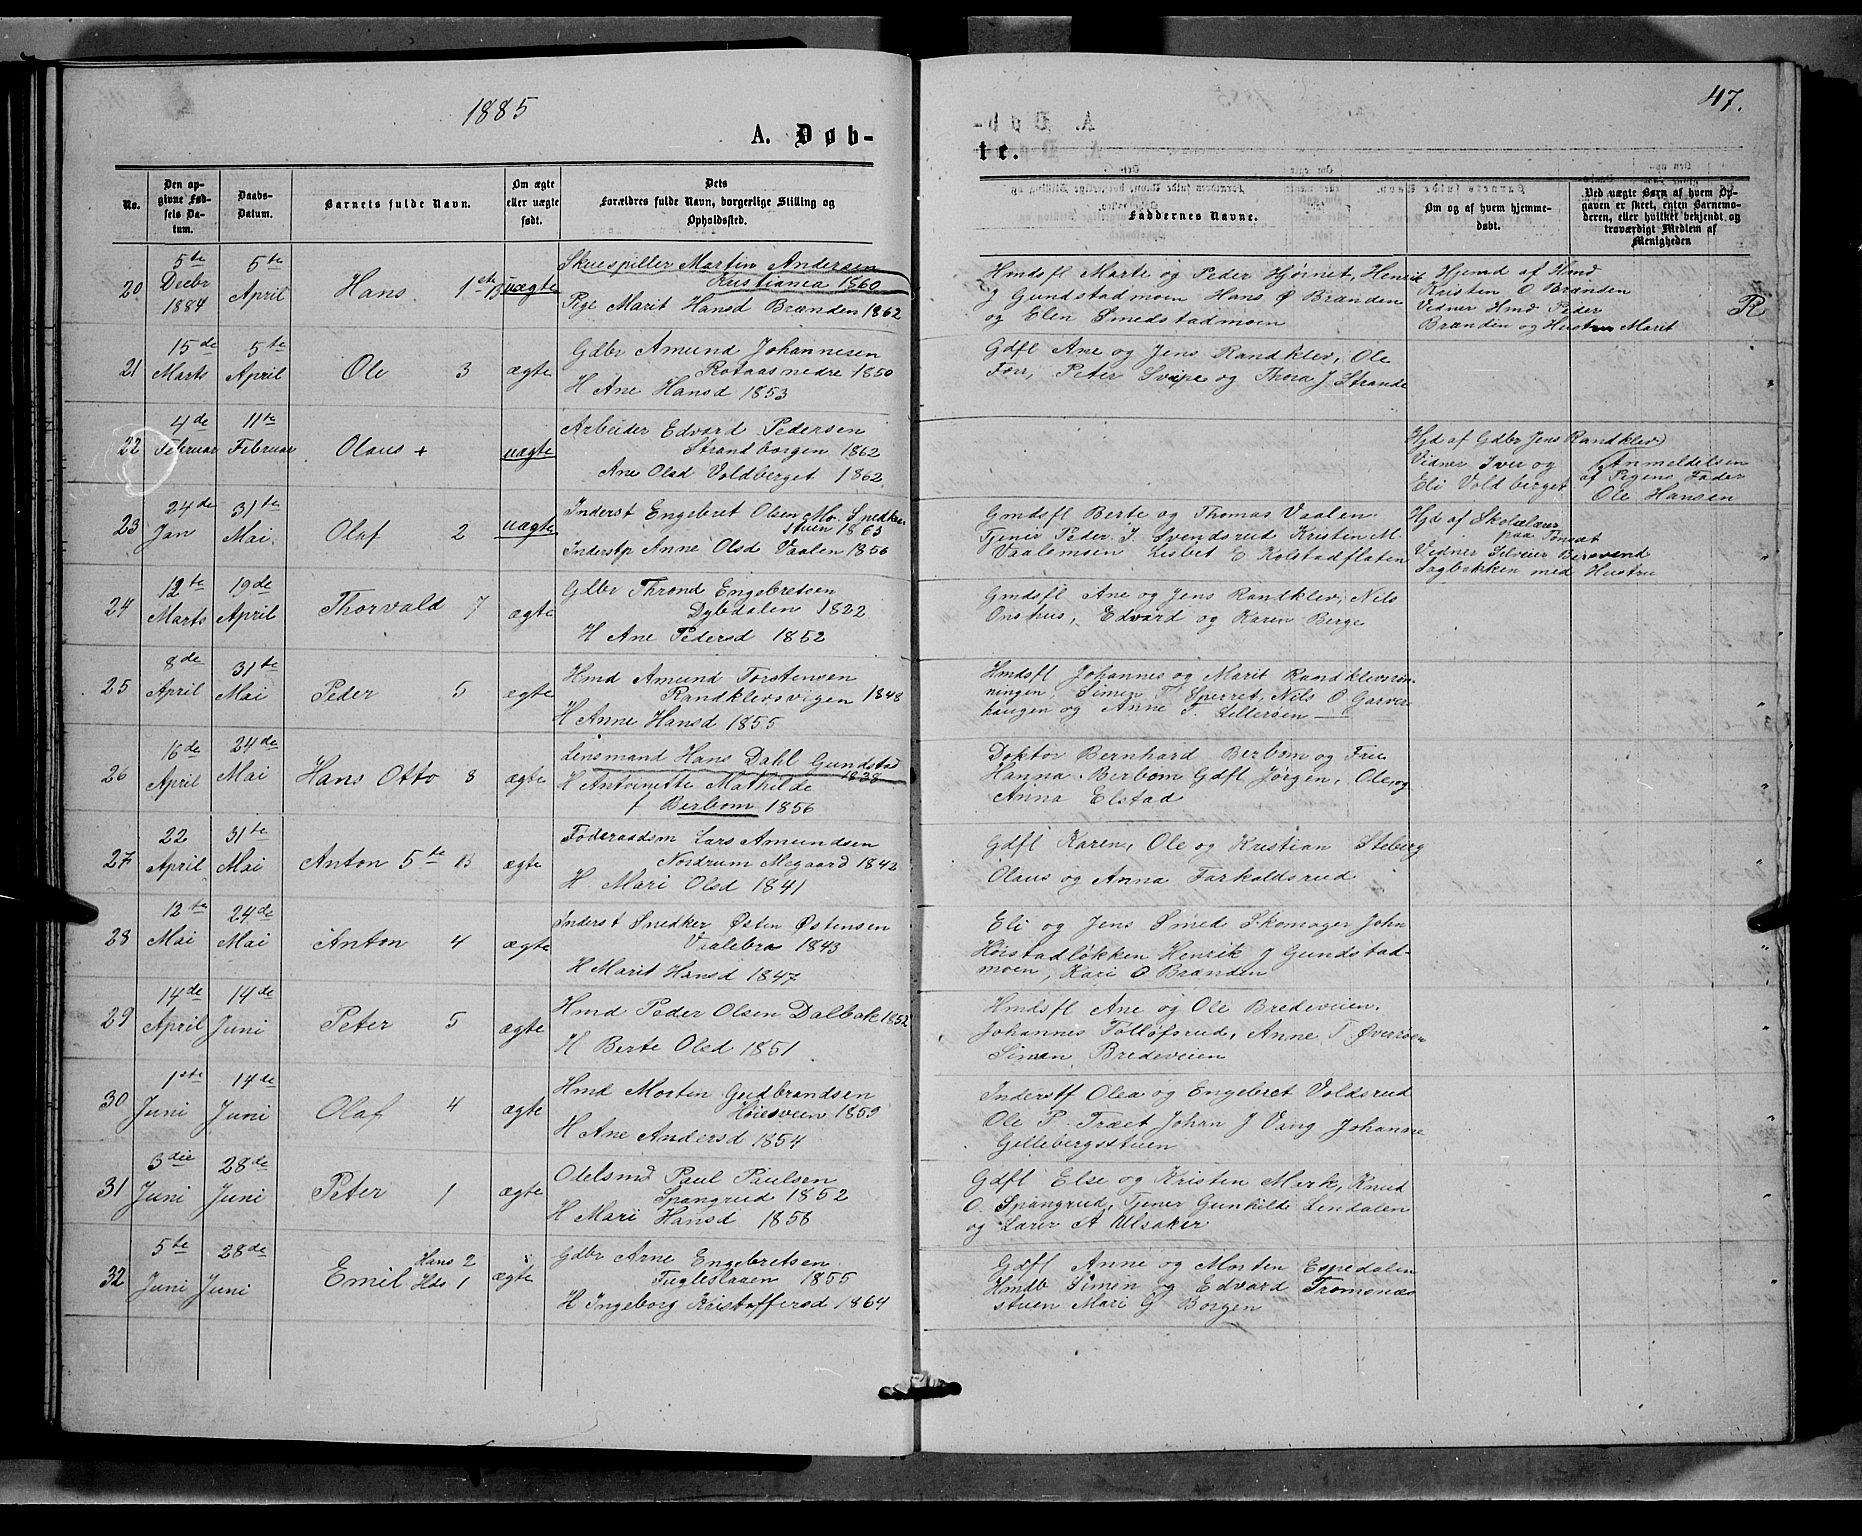 1885
A. Døb-
No.
Den op-
givne Fød-
sels Da-
tum.
Daabs-
Datum.
Barnets fulde Navn.
Om ægte
eller uægte
født.
Dets
Forældres fulde Navn, borgerlige Stilling og
Opholdssted.
20
5te
Decbr
1884
5te
April
Hans 1ste B
uægte
Skuespiller Martin Andersen
Kristiania 1860
Pige Marit Hansd Brænden 1862
21
15de
Marts
5te
April
Ole 3
ægte
Gdbr Amund Johannesen
Rotaasnedre 1850
H Ane Hansd 1853
22
4de
Februar
11te
Februar
Olaus +
uægte
Arbeider Edvard Pedersen
Strandborgen 1862
Ane Olsd Voldberget 1862
23
24de
Jan
31te
Mai.
Olaf 2
uægte
Inderst Engebret Olsen Mo.
stuen 1863
Inderstp Anne Olsd Vaalen 1856
24
12te
Marts
19de
April
Thorvald 7
ægte
Gdbr Thrond Engebretsen
Dybdalen 1822
H Ane Pedersd 1852
25
8de
April
31te
Mai
Peder 5
ægte
Hmd Amund Torstensen
Randklevsvigen 1848
H Anne Hansd 1855
26
16de
April
24de
Mai
Hans Otto 8
ægte
Lensmand Hans Dahl Gundstad
1838
H Antoinette Mathilde
f Berbom 1856
27
22
April
31te
Mai
Anton 5te B
ægte
Føderaadsm Lars Amundsen
Nordrum Megaard 1842
H Mari Olsd 1841
28
12te
Mai
24de
Mai
Anton 4
ægte
Inderst Snedker Østen Østensen
Vaalebro 1843
H Marit Hansd 1847
29
14de
April
14de
Juni
Peter 5
ægte
Hmd Peder Olsen Dalbak 1852
H Berte Olsd 1851
30
1ste
Juni
14de
Juni
Olaf 4
ægte
Hmd Morten Gudbrandsen
Høiesveen 1859
H Ane Andersd 1854
31
3die
Juni
28de
Juni
Peter 1
ægte
Odelsmd Paul Paulsen
Spangrud 1852
H Mari Hansd 1856
32
5te
Juni
28de
Juni
Emil
Hans 2
Hds 1
ægte
Gdbr Arne Engebretsen
Fugleslaaen 1855
H Ingeborg Kristoffersd 1864
47.
te.
Faddernes Navne.
Om og af hvem hjemme-
døbt.
Ved uægte Børn af hvem Op-
gaven er skeet, enten Barnemo-
deren, eller hvilket bekjendt og
troværdigt Medlem af
Menigheden
Hmdsfl Marte og Peder Hjørnet, Henrik
J Gundstadmoen Hans Ø Brænden
og Elen Smedstadmoen
Hjemd af Hmd
Kristen O Brænden
Vidner Hmd Peder
Brænden og Hustru Marit
R
Gdfl Ane og Jens Randklev, Ole
Forr, Peter Svipe og Thora J Strande
Hjd af Gdbr Jens Randklev
Vidner Iver og
Eli Voldberget
Anmeldelsen
af Pigens Fader
Ole Hansen
Gmdsfl Berte og Thomas Vaalen
Tjener Peder J. Svendsrud Kristin M.
Vaalemoen Lisbet E Kolstadfløten
Hjd af Skolelærer
paa
Vidner
Bagbakken med Hustru
Gmdsfl Ane og Jens Randklev, Nils
Onshus, Edvard og Karen Berge
Hmdsfl Johannes og Marit Randklevsrøn-
ningen, Simen T Sperret, Nils O Garver-
haugen og Anne T. Lillersen
Doktor Bernhard Berbom og Frue
Hanna Berbom Gdfl Jørgen, Ole, og
Anna Elstad
Gdfl Karen, Ole og Kristian Steberg
Olaus og Anna Forkaldsrud
Eli og Jens Smed Skomager John
Høistadløkken Henrik J Gundstad-
moen, Kari O Brænden
Hmdsfl Ane og Ole Bredeveien.
Johannes Tolløfsrud, Anne T Øversøen
Simen Bredeveien
Inderstf Olea og Engebret Voldsrud
Ole P. Træet Johan J Vang Johanne
Gillebergsstuen
Gdfl Else og Kristen Mark, Knud
O. Spangrud, Tjener Gunhilde Lindalen
og Lærer A Ulsaker
Gdfl Anne og Morten Espedalen
Hmdb Simen og Edvard Tromsnæs
stuen Mari G Borgen